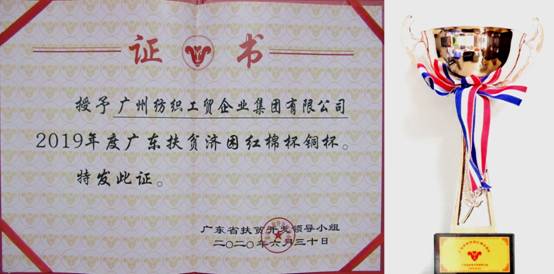 证书
授予广州纺织工贸企业集团有限公司
2019年度广东扶贫济困红棉杯铜杯。
特发此证。
广东省扶贫开发领导小组
二〇二〇年六月三十日